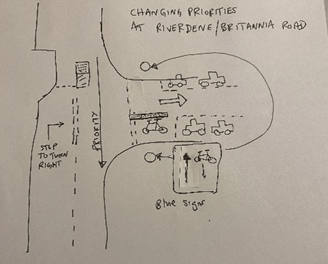 CHANGING PRIORITIES
AT RIVERDENE/BRITANNIA ROAD
PRIORITY
STOP
TO TURN
RIGHT
Blue Signs